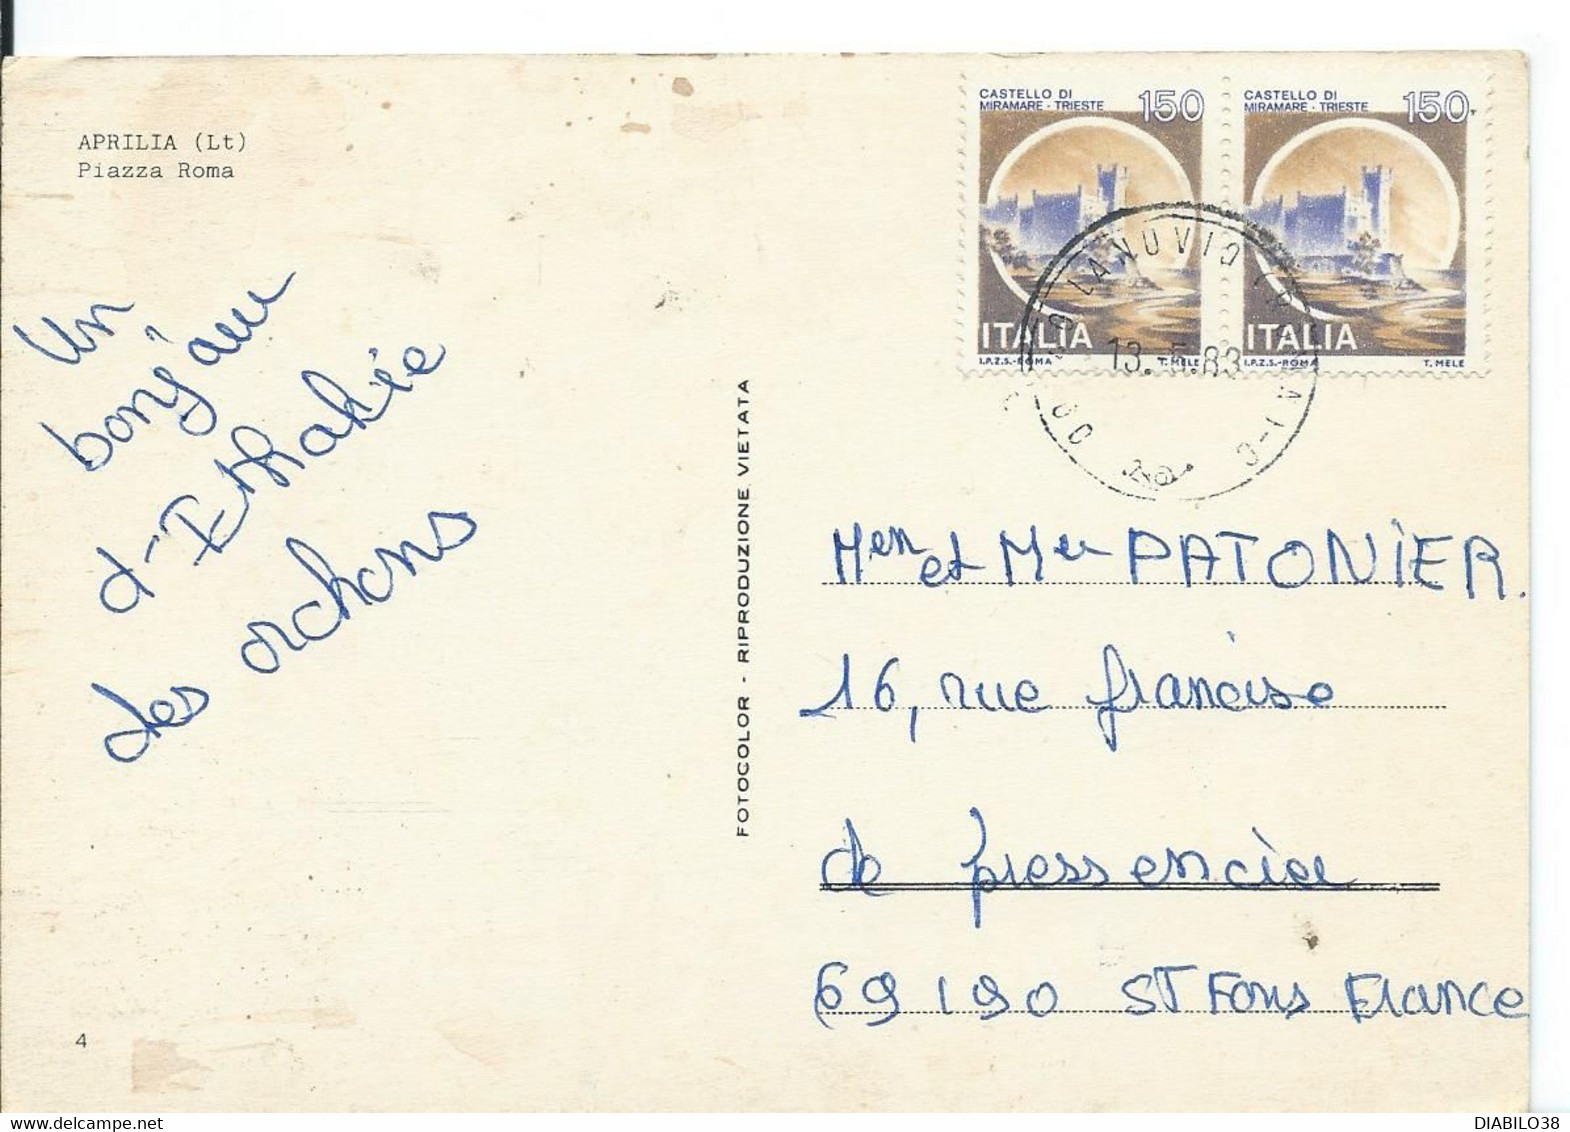 APRILIA (Lt)
Piazza Roma
Un
bonjour
d'Ethalie
des orchons
4
FOTOCOLOR - RIPRODUZIONE VIETATA
CASTELLO DI
MIRAMARE - TRIESTE 150
ITALIA
I.P.Z.S.-ROMA T. MELE
CASTELLO DI
MIRAMARE - TRIESTE 150
ITALIA
I.P.Z.S.-ROMA T. MELE
LANUVIO
13.5.83
et PATONIER
16, rue francise
de pressencie
69190 ST Fons France
DIABILO38